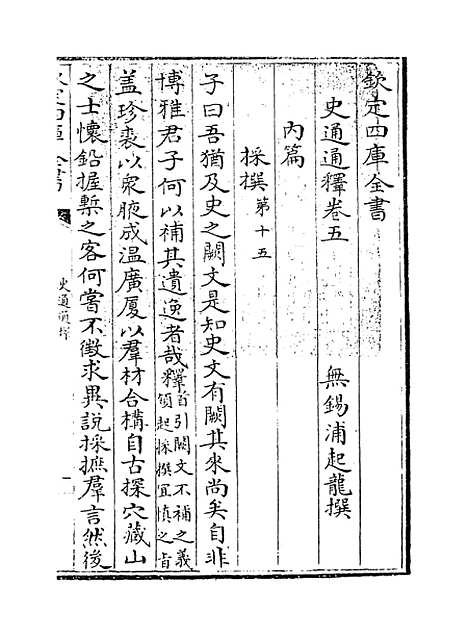 欽定四庫全書
史通通釋卷五
無錫浦起龍撰
內篇
採撰第十五
子曰吾猶及史之闕文是知史文有闕其來尚矣自非
博雅君子何以補其遺逸者哉釋首引闕文不補之義
領起採撰宜慎之旨
蓋珍裘以衆腋成温廣厦以羣材合構自古探穴藏山
之士懷鉛握槧之客何嘗不徵求異說採摭羣言然後
欽定四庫全書
史通通釋
一